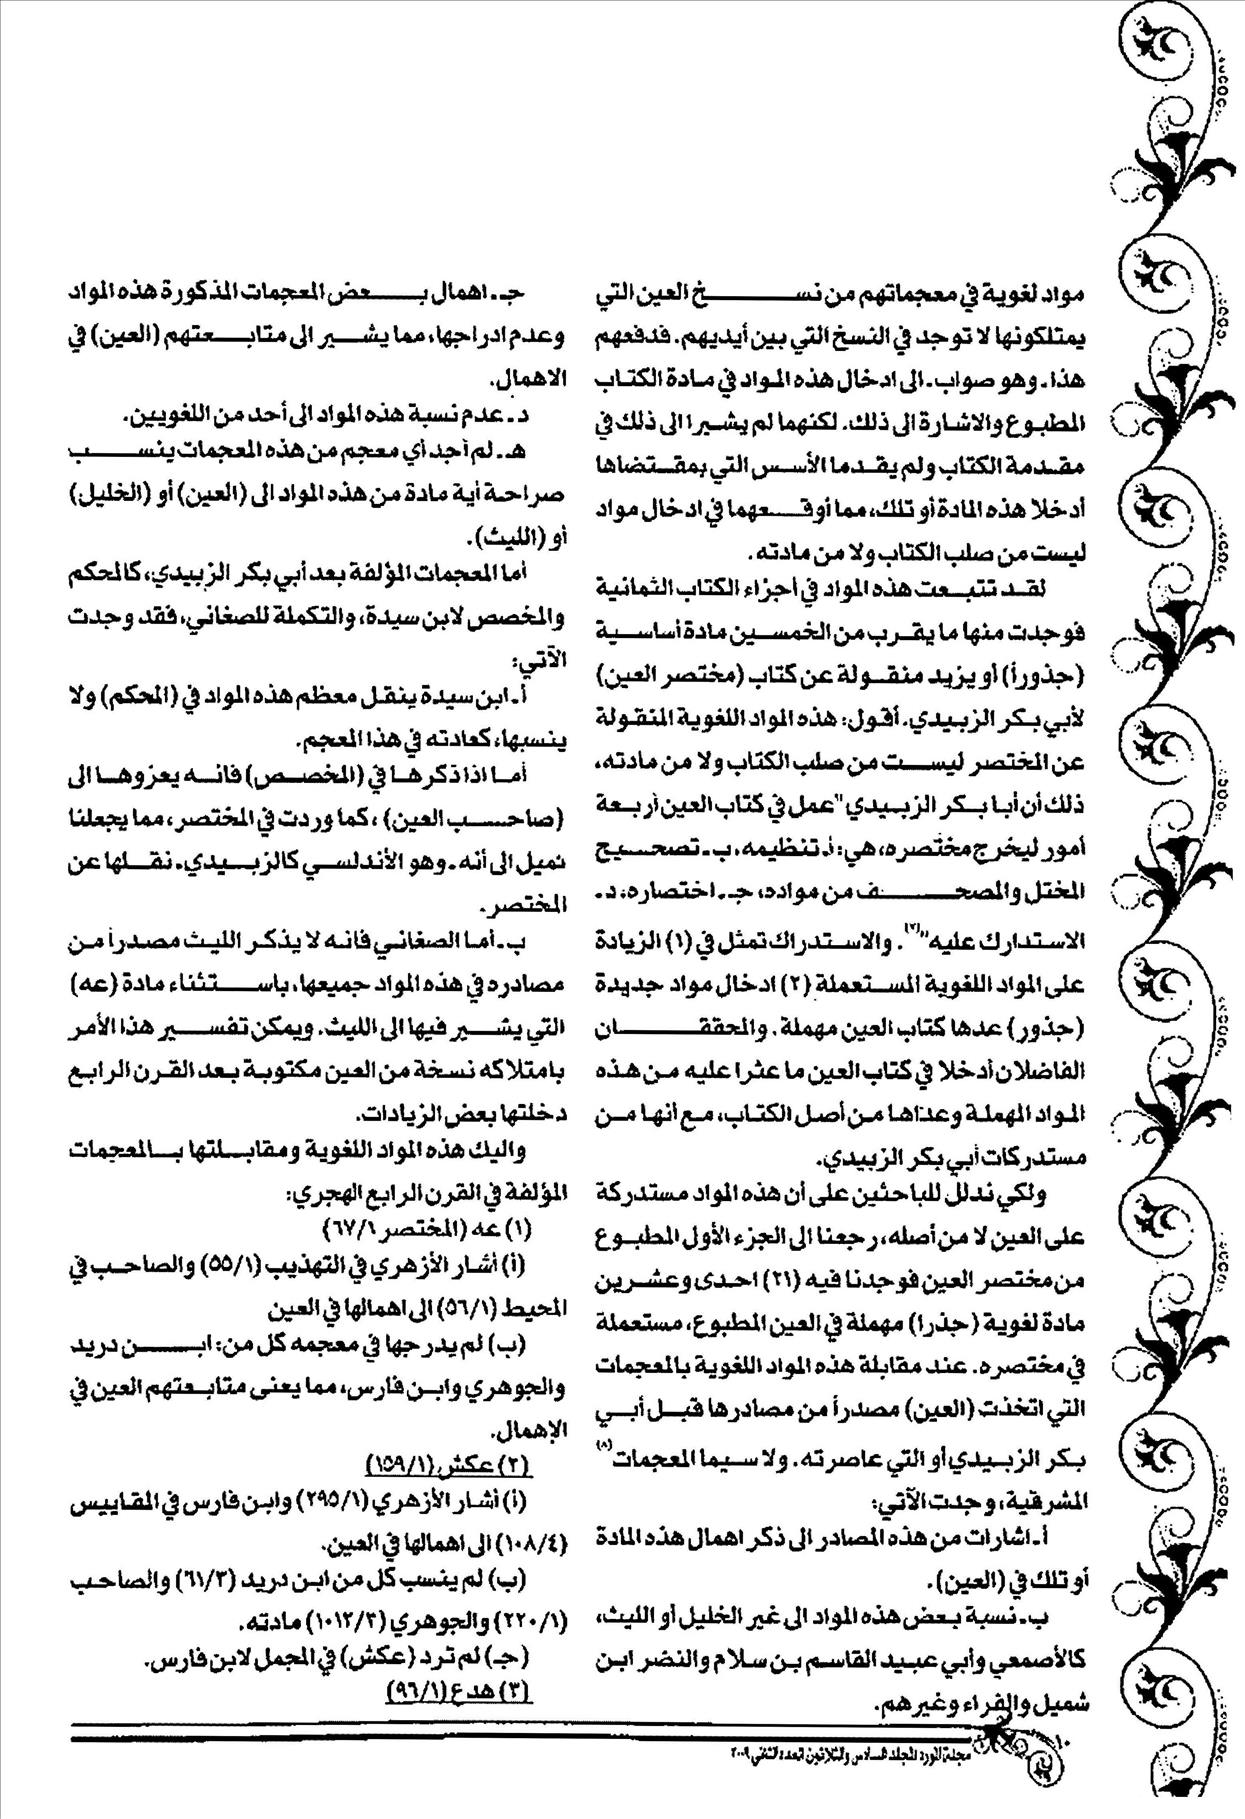 مواد لغوية في معجماتهم من نسخ العين التي
يمتلكونها لا توجد في النسخ التي بين أيديهم. فدفعهم
هذا ـ وهو صواب ـ الى ادخال هذه المواد في مادة الكتاب
المطبوع والاشارة الى ذلك. لكنهما لم يشيرا الى ذلك في
مقدمة الكتاب ولم يقدما الأسس التي بمقتضاها
أدخلا هذه المادة أو تلك، مما أوقعهما في ادخال مواد
ليست من صلب الكتاب ولا من مادته.
لقد تتبعت هذه المواد في أجزاء الكتاب الثمانية
فوجدت منها ما يقرب من الخمسين مادة أساسية
(جذوراً) أو يزيد منقولة عن كتاب (مختصر العين)
لأبي بكر الزبيدي. أقول: هذه المواد اللغوية المنقولة
عن المختصر ليست من صلب الكتاب ولا من مادته،
ذلك أن أبا بكر الزبيدي "عمل في كتاب العين أربعة
أمور ليخرج مختصره، هي: أ. تنظيمه، ب ـ تصحيح
المختل والمصحف من مواده، جـ ـ اختصاره، د ـ
الاستدراك عليه"(٧). والاستدراك تمثل في (١) الزيادة
على المواد اللغوية المستعملة (٢) ادخال مواد جديدة
(جذور) عدها كتاب العين مهملة. والمحققان
الفاضلان أدخلا في كتاب العين ما عثرا عليه من هذه
المواد المهملة وعداها من أصل الكتاب، مع أنها من
مستدركات أبي بكر الزبيدي.
ولكي ندلل للباحثين على أن هذه المواد مستدركة
على العين لا من أصله، رجعنا الى الجزء الأول المطبوع
من مختصر العين فوجدنا فيه (٢١) احدى وعشرين
مادة لغوية (جذرا) مهملة في العين المطبوع، مستعملة
في مختصره. عند مقابلة هذه المواد اللغوية بالمعجمات
التي اتخذت (العين) مصدراً من مصادرها قبل أبي
بكر الزبيدي أو التي عاصرته. ولا سيما المعجمات(٨)
المشرقية، وجدت الآتي:
أ ـ اشارات من هذه المصادر الى ذكر اهمال هذه المادة
أو تلك في (العين).
ب ـ نسبة بعض هذه المواد الى غير الخليل أو الليث،
كالأصمعي وأبي عبيد القاسم بن سلام والنضر ابن
شميل والفراء وغيرهم.
جـ ـ اهمال بعض المعجمات المذكورة هذه المواد
وعدم ادراجها، مما يشير الى متابعتهم (العين) في
الاهمال.
د ـ عدم نسبة هذه المواد الى أحد من اللغويين.
هـ ـ لم أجد أي معجم من هذه المعجمات ينسب
صراحة أية مادة من هذه المواد الى (العين) أو (الخليل)
أو (الليث).
أما المعجمات المؤلفة بعد أبي بكر الزبيدي، كالمحكم
والمخصص لابن سيدة، والتكملة للصغاني، فقد وجدت
الآتي:
أ ـ ابن سيدة ينقل معظم هذه المواد في (المحكم) ولا
ينسبها، كعادته في هذا المعجم.
أما اذا ذكرها في (المخصص) فانه يعزوها الى
(صاحب العين)، كما وردت في المختصر، مما يجعلنا
نميل الى أنه ـ وهو الأندلسي كالزبيدي ـ نقلها عن
المختصر.
ب ـ أما الصغاني فانه لا يذكر الليث مصدراً من
مصادره في هذه المواد جميعها، باستثناء مادة (عه)
التي يشير فيها الى الليث. ويمكن تفسير هذا الأمر
بامتلاكه نسخة من العين مكتوبة بعد القرن الرابع
دخلتها بعض الزيادات.
واليك هذه المواد اللغوية ومقابلتها بالمعجمات
المؤلفة في القرن الرابع الهجري:
(١) عه (المختصر ٦٧/١)
(أ) أشار الأزهري في التهذيب (٥٥/١) والصاحب في
المحيط (٥٦/١) الى اهمالها في العين
(ب) لم يدرجها في معجمه كل من: ابن دريد
والجوهري وابن فارس، مما يعنى متابعتهم العين في
الإهمال.
(٢) عكش (١٥٩/١)
(أ) أشار الأزهري (٢٩٥/١) وابن فارس في المقاييس
(١٠٨/٤) الى اهمالها في العين.
(ب) لم ينسب كل من ابن دريد (٦١/٣) والصاحب
(٢٢٠/١) والجوهري (١٠١٢/٣) مادته.
(جـ) لم ترد (عكش) في المجمل لابن فارس.
(٣) هدع (٩٦/١)
١٠
مجلة المورد المجلد السادس والثلاثون العدد الثاني ٢٠٠٩